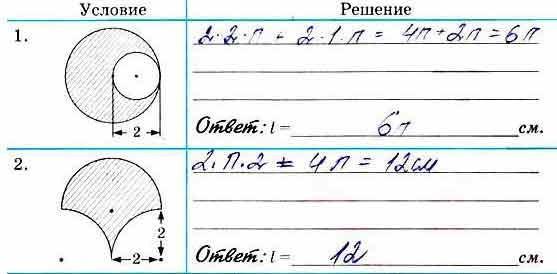 Условие Решение
1. 2·2·п + 2·1·п = 4п+2п=6п
2
Ответ: l = 6п см.
2. 2·П·2 = 4П = 12см
2
2
Ответ: l = 12 см.